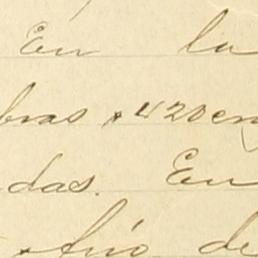 En la
bras, 420 en
das. En
Año de